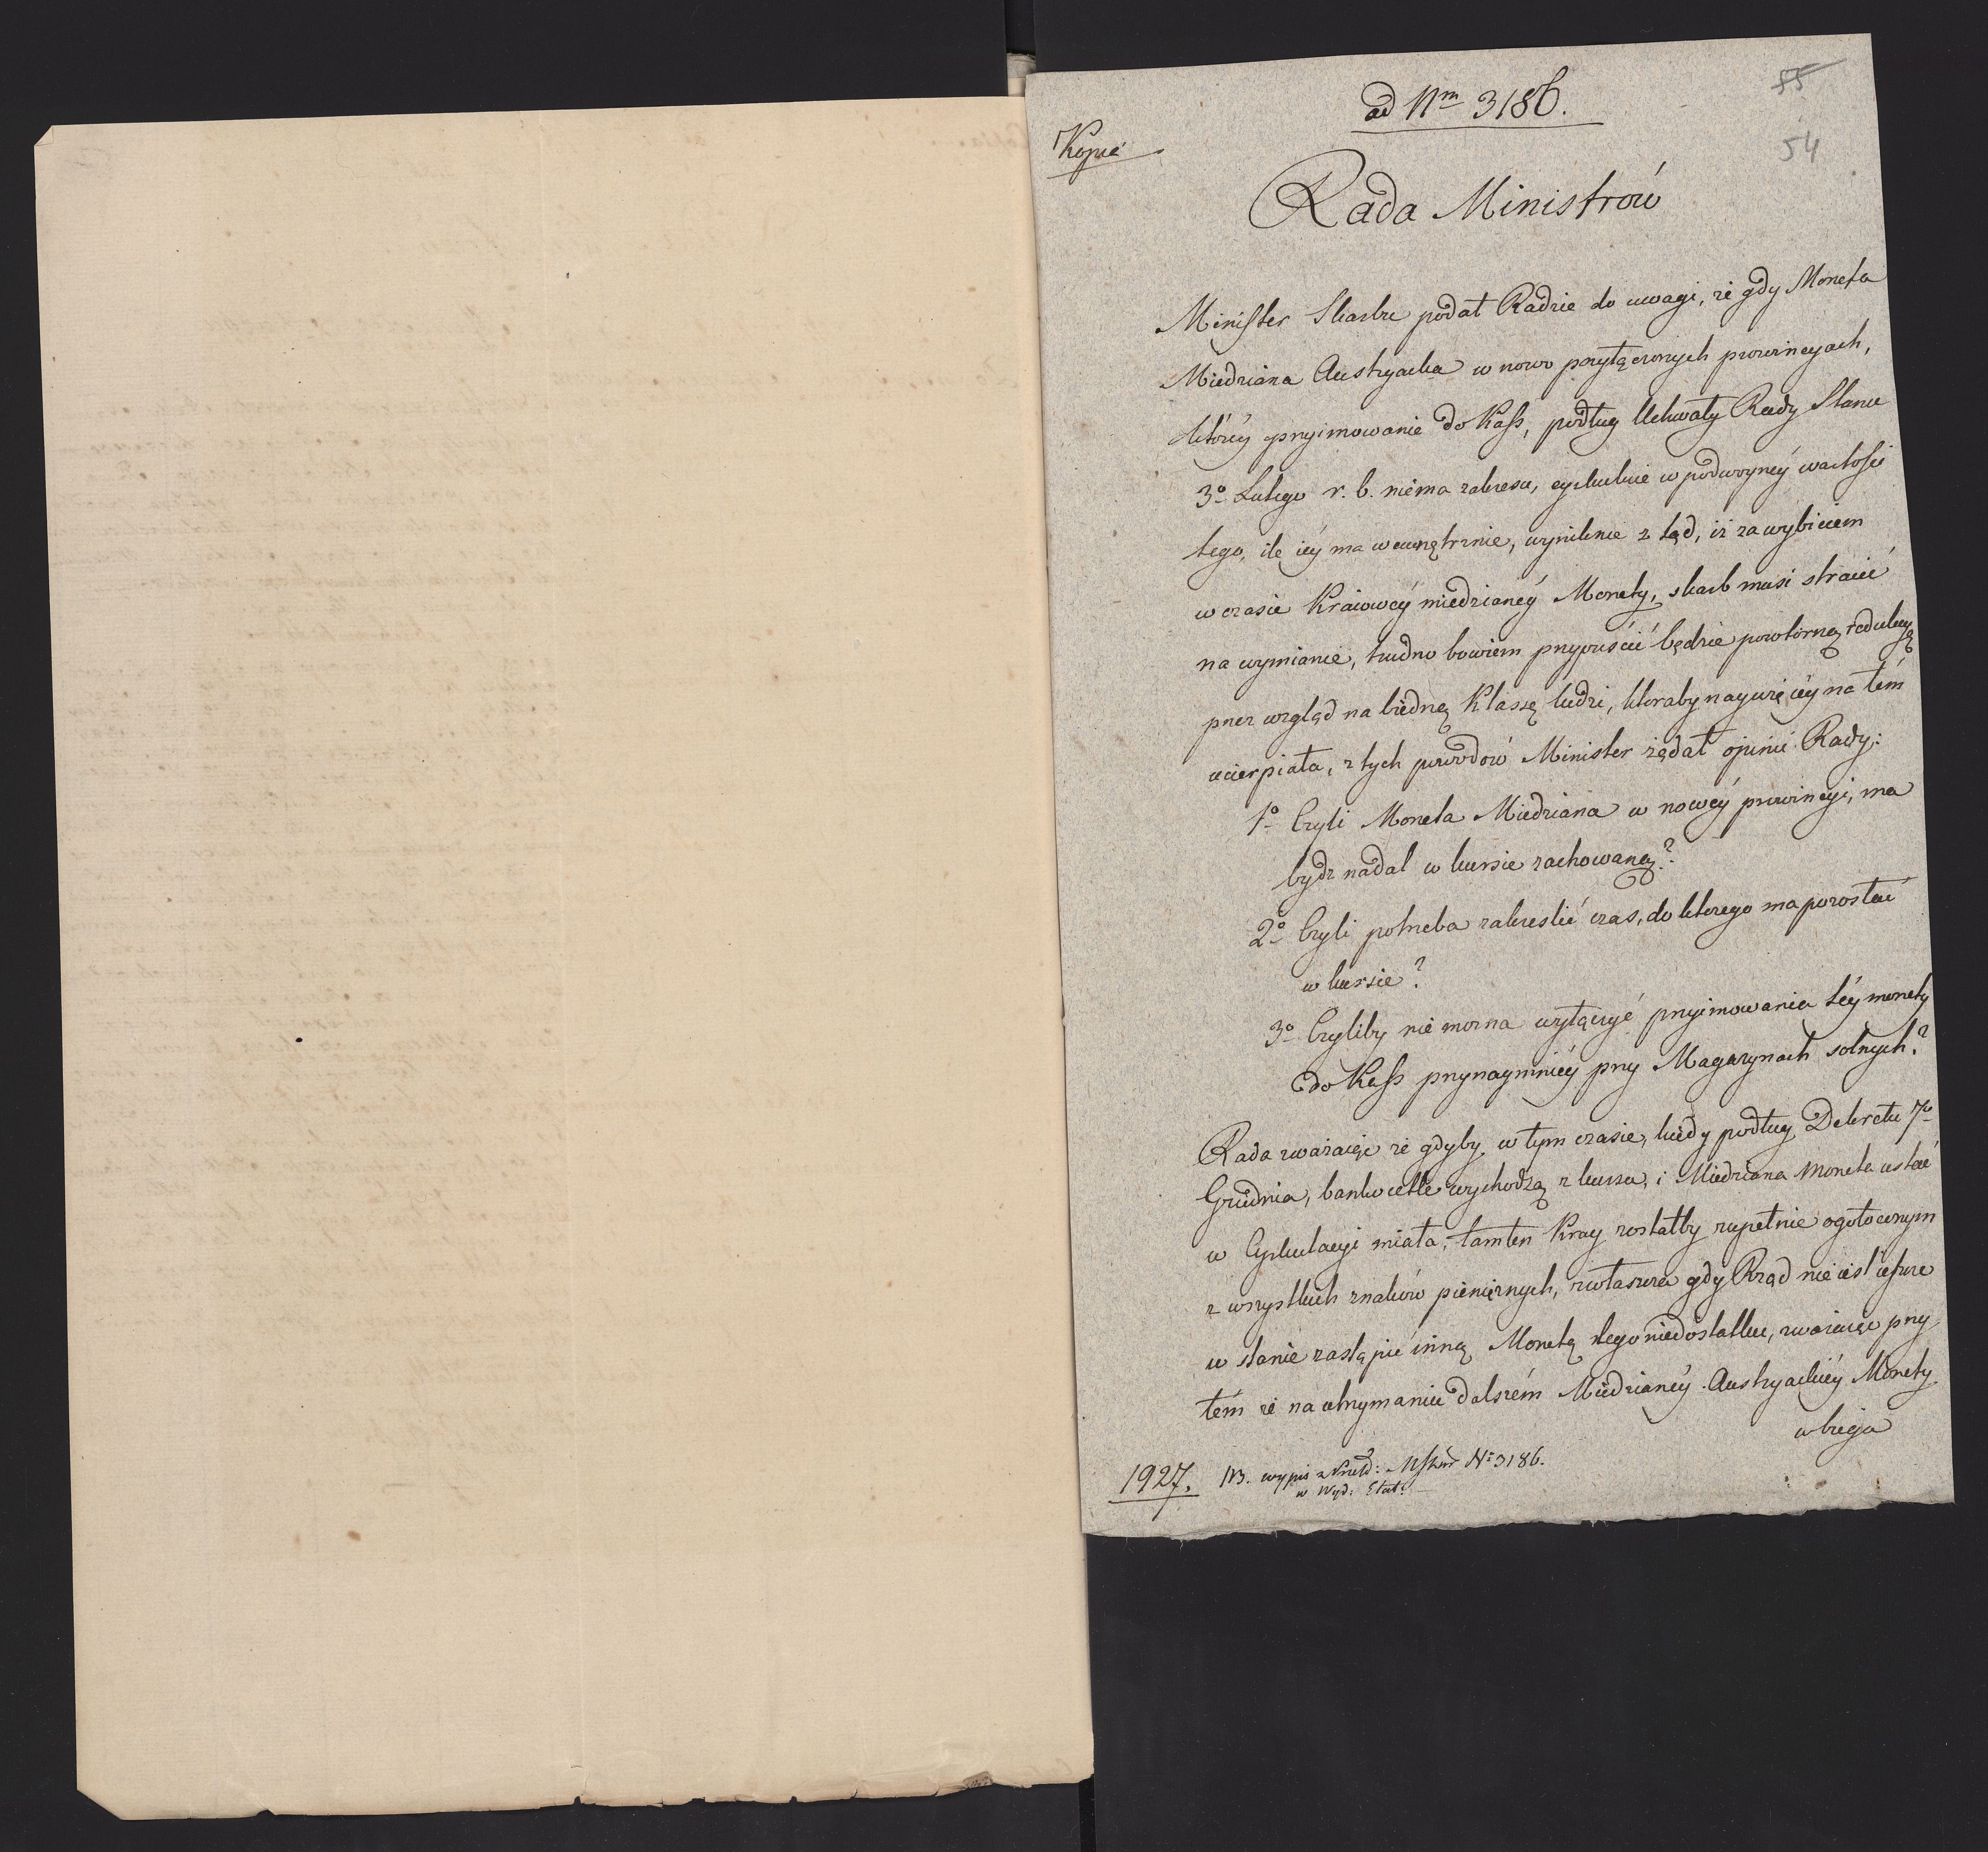 55
54
ad Nrm 3186.
Kopia
Rada Ministrów
Minister Skarbu podał Radzie do uwagi, że gdy Moneta
Miedziana Austryacka w nowo przyłączonych prowincyach,
któréy przyimowanie do Kass, podług Uchwały Rady Stanu
3o Lutego r. b. niema zakresu, cyrkuluie w podwoynéy wartości
tego, ile iéy ma wewnętrznie, wyniknie z tąd, iż za wybiciem
w czasie Kraiowéy miedzianéy Monety, skarb musi stracić
na wymianie, trudno bowiem przypuścić będzie powtórną redukcyą
przez wzgląd na biedną Klassę ludzi, któraby naywięcéy na tém
ucierpiała, z tych powodów Minister żądał opinii Rady:
1o Czyli Moneta Miedziana w nowéy prowincyi, ma
bydz nadal w kursie zachowaną?
2o Czyli potrzeba zakreslić czas, do ktorego ma pozostać
w kursie?
3o Czyliby nie można wyłączyć przyimowania téy monety
do Kass przynaymniéy przy Magazynach solnych?
Rada zważaiąc że gdyby w tym czasie, kiedy podług Dekretu 7o
Grudnia, bankocetle wychodzą z kursu, i Miedziana Moneta ustać
w Cyrkulacyi miała, tamten Kray zostałby zupełnie ogołoconym
z wszystkich znaków pieniężnych, zwłaszcza gdy Rząd nie iest ieszcze
w stanie zastąpić inną Monetą tego niedostatku, zważaiąc przy
tém że na utrzymaniu dalszém Miedzianéy Austryackiéy Monety
w biegu
1927. NB. wypis z N: 3186.
w Wyd: Stat: